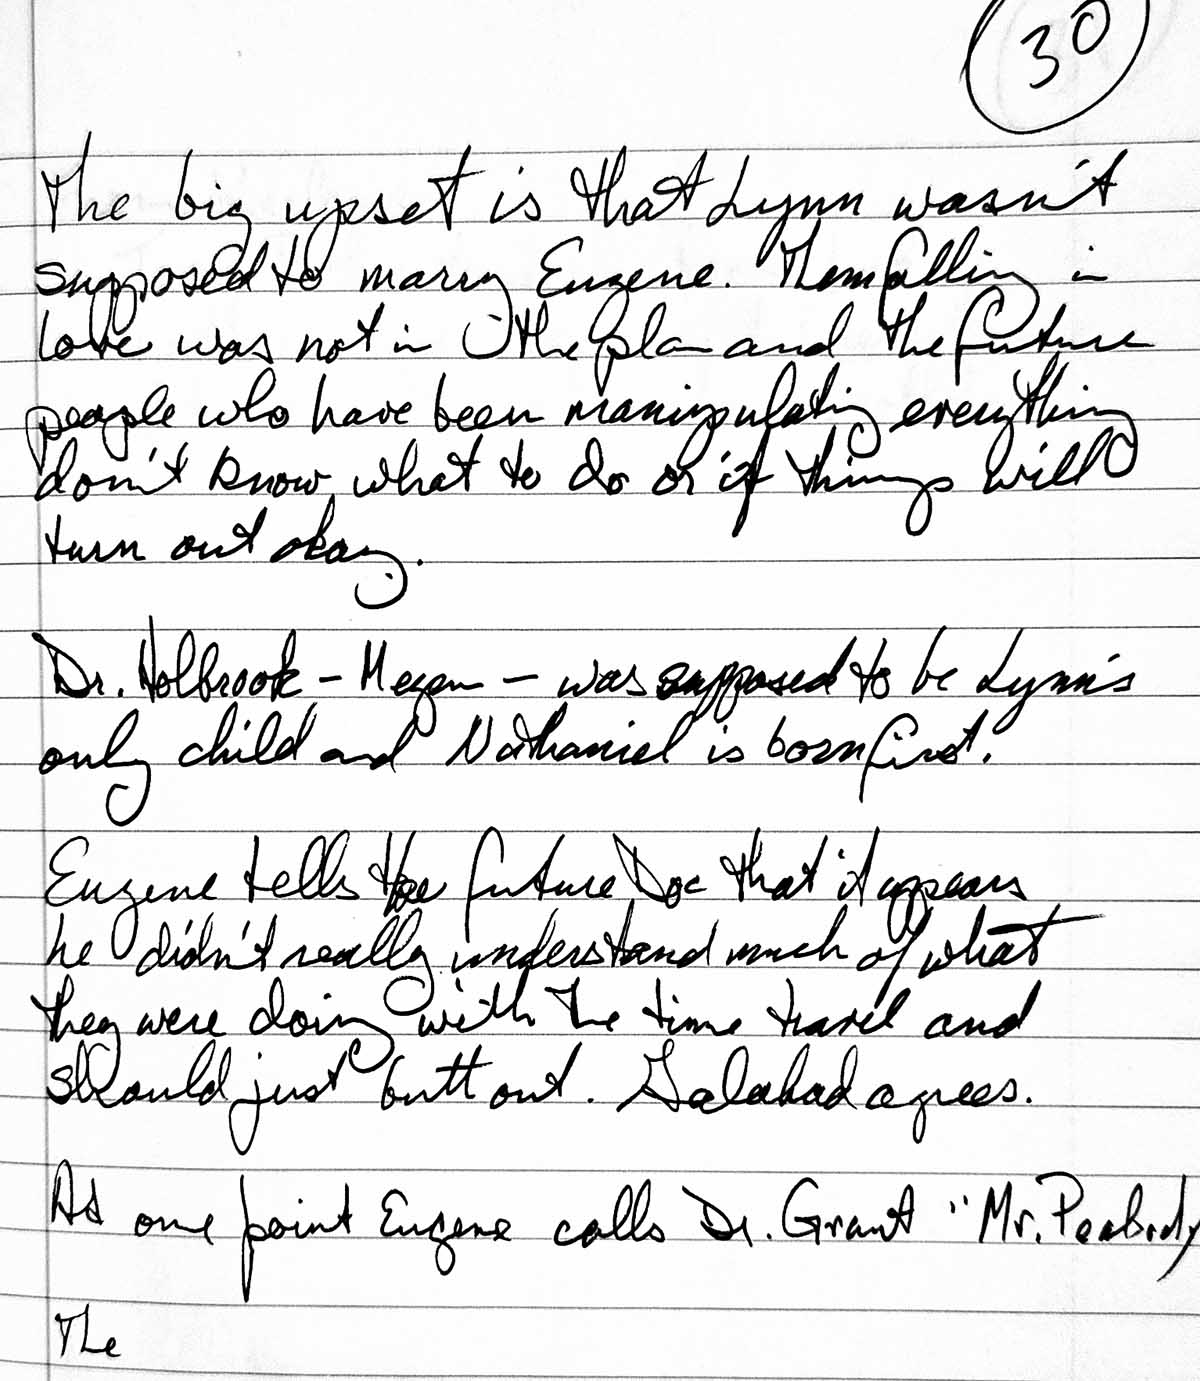 30
The big upset is that Lynn wasn't
supposed to marry Eugene. Them falling in
love was not in the plan and the future
people who have been manipulating everything
don't know what to do or if things will
turn out okay.
Dr. Holbrook - Megan - was supposed to be Lynn's
only child and Nathaniel is born first.
Eugene tells the future Doc that it appears
he didn't really understand much of what
they were doing with the time travel and
should just butt out. Galahad agrees.
At one point Eugene calls Dr. Grant "Mr. Peabody
The